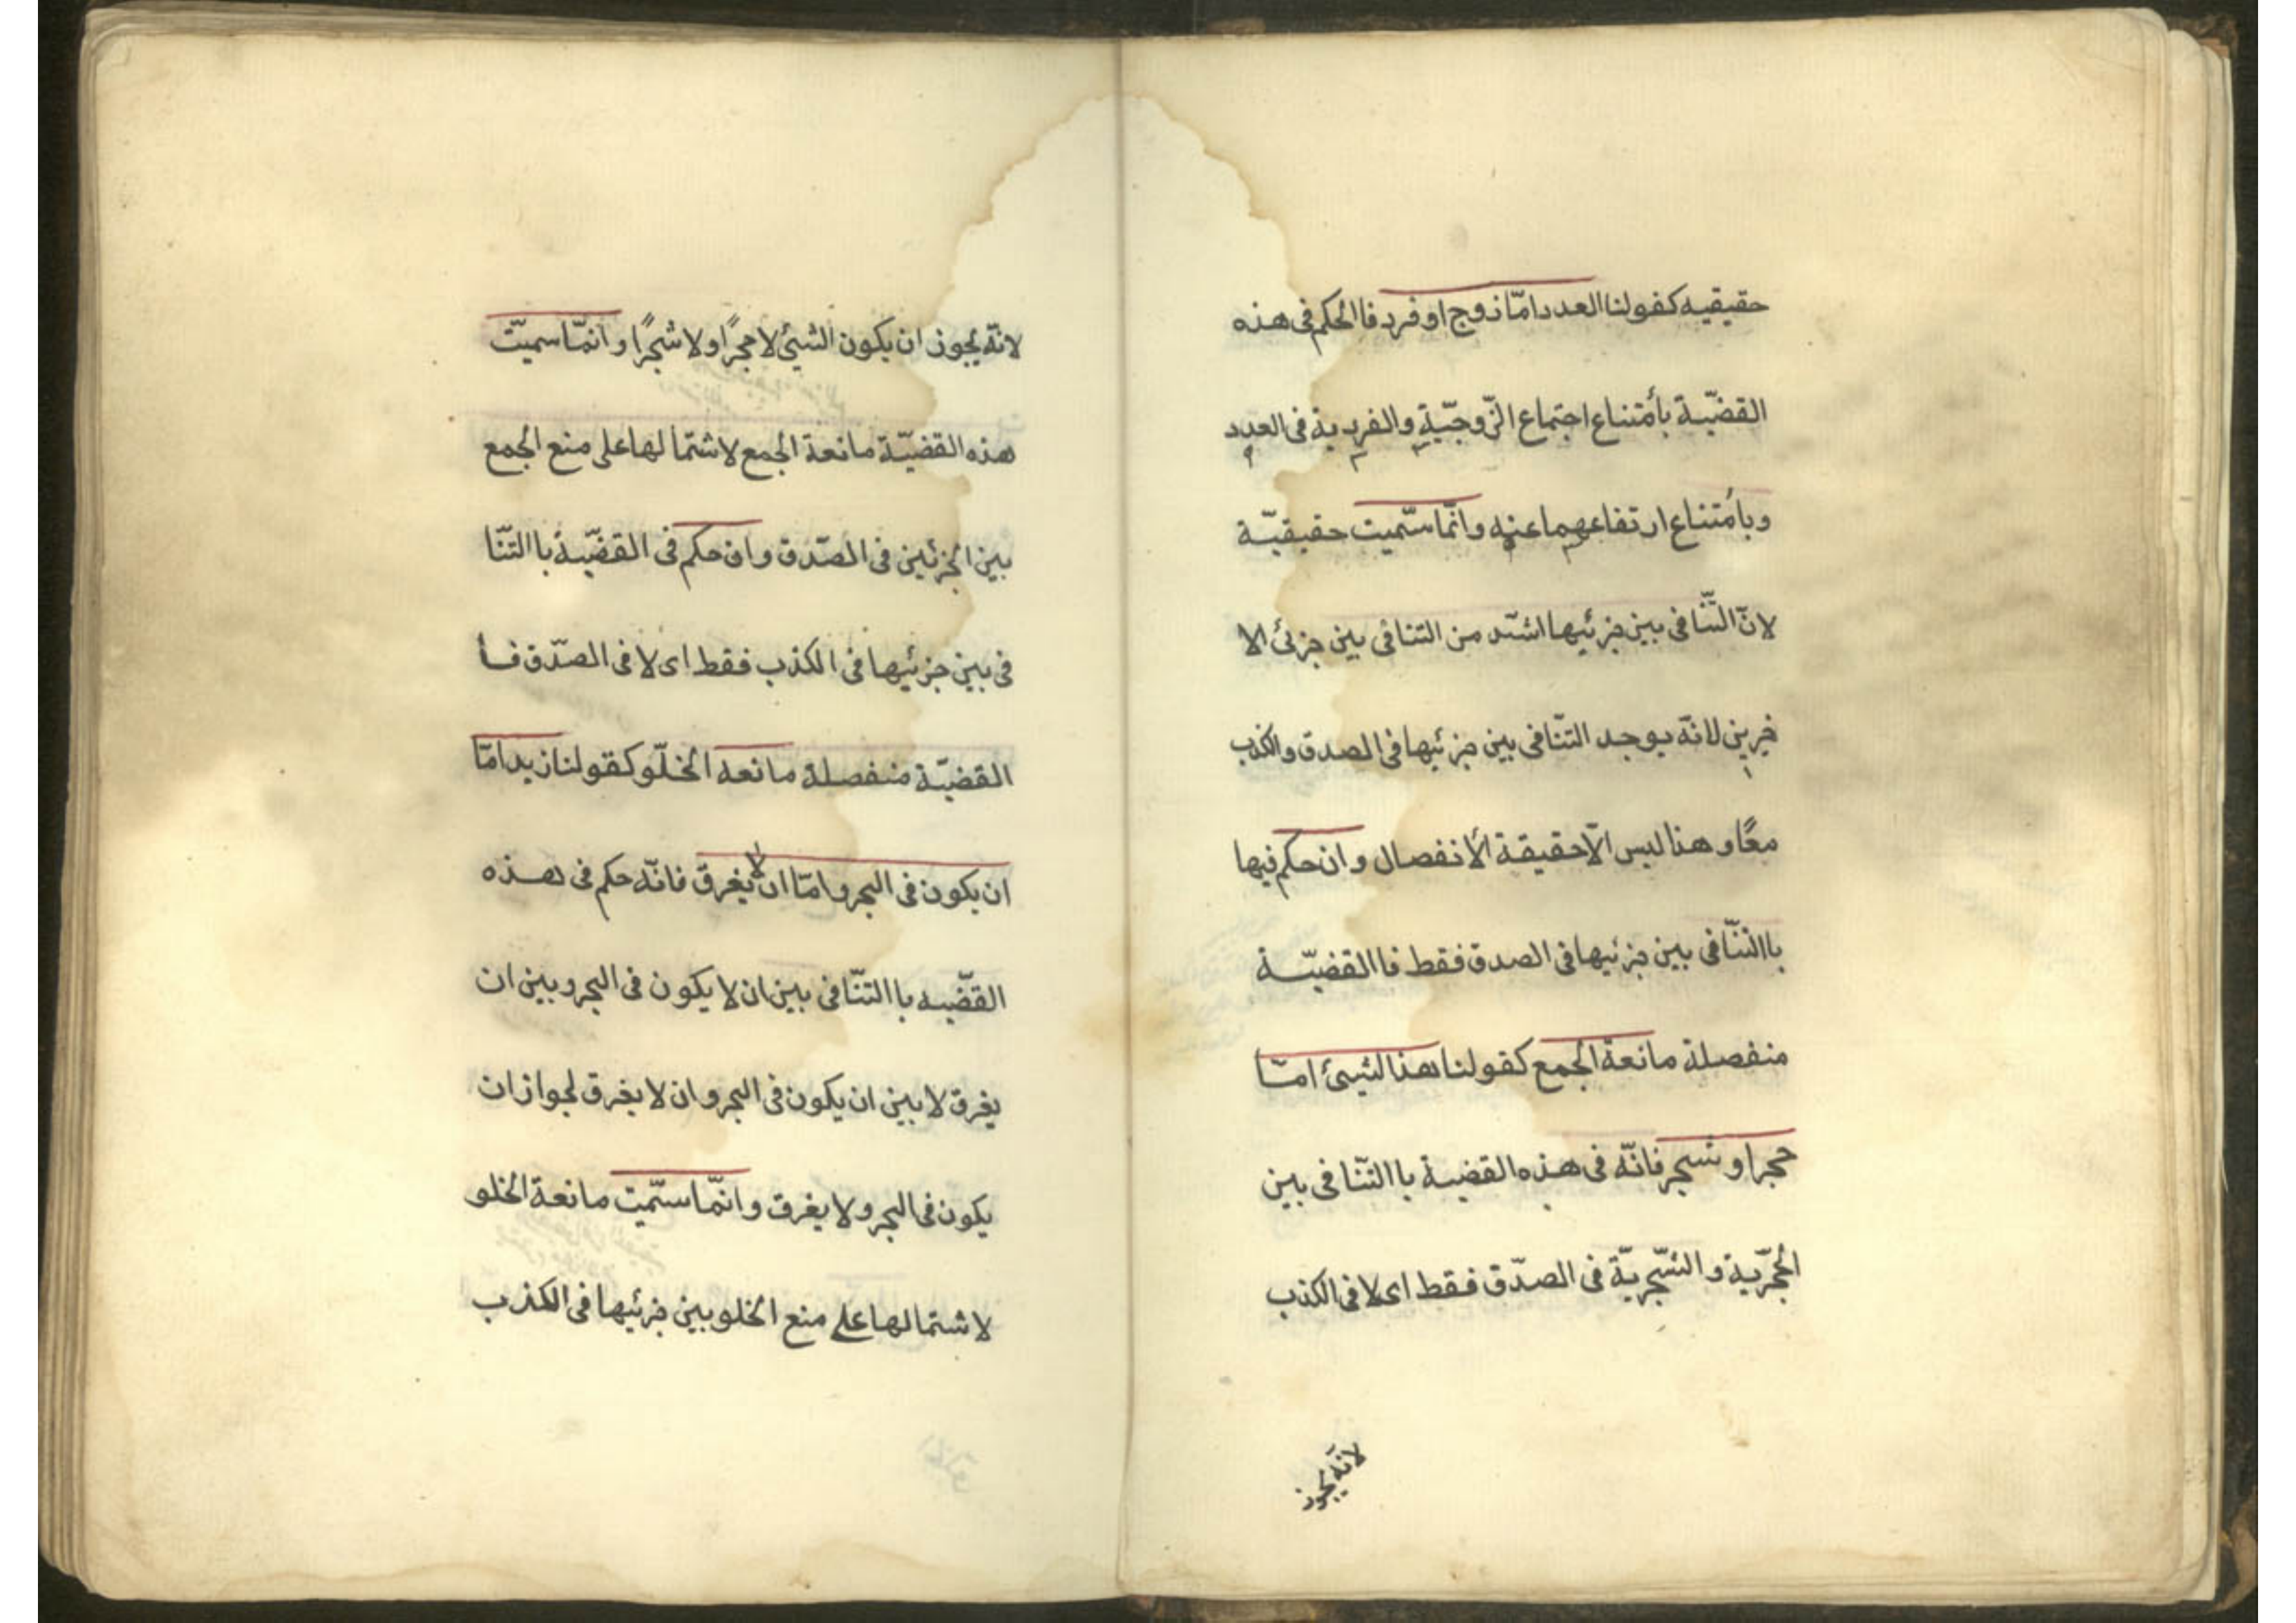 حقيقيه كقولنا العدد امّا زوج او فرد فا الحكم فى هذه
القضيّة بأمتناع اجتماع الزّوجيّة والفردية فى العدد
وبأمتناع ارتفاعهما عنه وانّما سمّيت حقيقيّة
لانّ التّنافى بين جزئيها اشدّ من التنافى بين جزئى الا
خرين لانّه يوجد التنّافى بين جزئيها فى الصدق والكذب
معًا وهذا ليس الّا حقيقة الأنفصال وان حكم فيها
باالتنّافى بين جزئيها فى الصدق فقط فا القضيّة
منفصلة مانعة الجمع كقولنا هذا الشيئ امّا
حجرا و شجر فانّه فى هذه القضية با التنّافى بين
الحجريّة والشّجريّة فى الصدّق فقط اى لا فى الكذب
لانّه يجوز
لانّه يجوز ان يكون الشيئ لا حجرًا ولا شجرًا وانمّا سميّت
هذه القضيّة مانعة الجمع لاشتمالها على منع الجمع
بين الجزئين فى الصّدق وان حكم فى القضيّة باالتنّا
فى بين جزئيها فى الكذب فقط اى لا فى الصدّق فأ
القضيّة منفصلة مانعه الخلّو كقولنا زيد امّا
ان يكون فى البحر وامّا ان لا يغرق فانّه حكم فى هذه
القضّيه با التنّافى بين ان لا يكون فى البحر وبين ان
يغرق لا بين ان يكون فى البحر وان لا يغرق لجواز ان
يكون فى البحر ولا يغرق وانمّا سمّيت مانعة الخلو
لاشتمالها على منع الخلو بين جزئيها فى الكذب